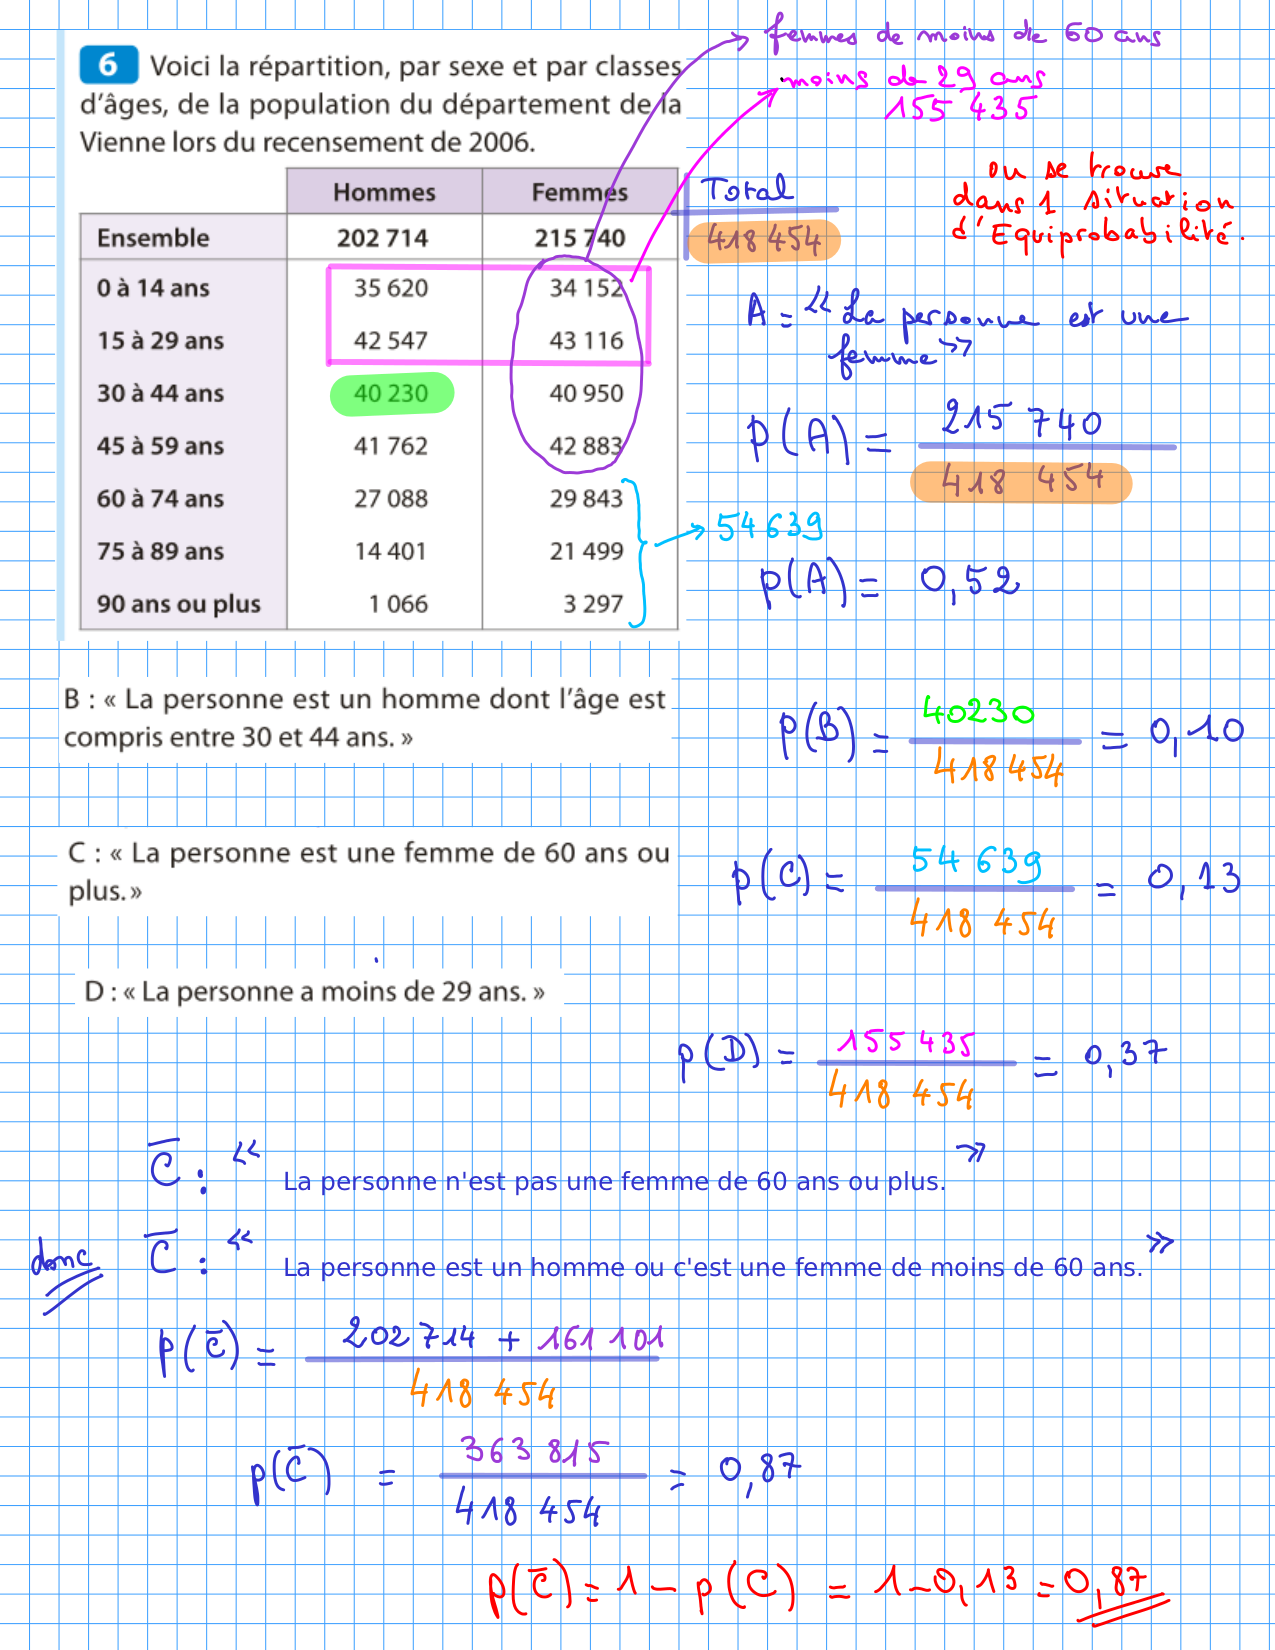 femmes de moins de 60 ans
moins de 29 ans
155 435
6 Voici la répartition, par sexe et par classes
d'âges, de la population du département de la
Vienne lors du recensement de 2006.
Hommes Femmes Total
Ensemble 202 714 215 740 418 454
0 à 14 ans 35 620 34 152
15 à 29 ans 42 547 43 116
30 à 44 ans 40 230 40 950
45 à 59 ans 41 762 42 883
60 à 74 ans 27 088 29 843
75 à 89 ans 14 401 21 499
90 ans ou plus 1 066 3 297
54 639
on se trouve
dans 1 situation
d'Equiprobabilité.
A = « La personne est une
femme »
p(A) = 215 740
418 454
p(A) = 0,52
B : « La personne est un homme dont l'âge est
compris entre 30 et 44 ans. »
p(B) = 40230 = 0,10
418 454
C : « La personne est une femme de 60 ans ou
plus.»
p(C) = 54 639 = 0,13
418 454
D : « La personne a moins de 29 ans. »
p(D) = 155 435 = 0,37
418 454
C̅ : « La personne n'est pas une femme de 60 ans ou plus. »
donc C̅ : « La personne est un homme ou c'est une femme de moins de 60 ans. »
p(C̅) = 202 714 + 161 101
418 454
p(C̅) = 363 815 = 0,87
418 454
p(C̅) = 1 - p(C) = 1 - 0,13 = 0,87